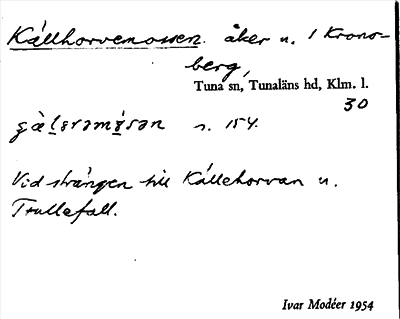 Källhorvemossen. åker u. 1 Krono-
berg,
Tuna sn, Tunaläns hd, Klm. l.
30
s. 154.
Vid stängen till Källehorvan u.
Trullefall.
Ivar Modéer 1954